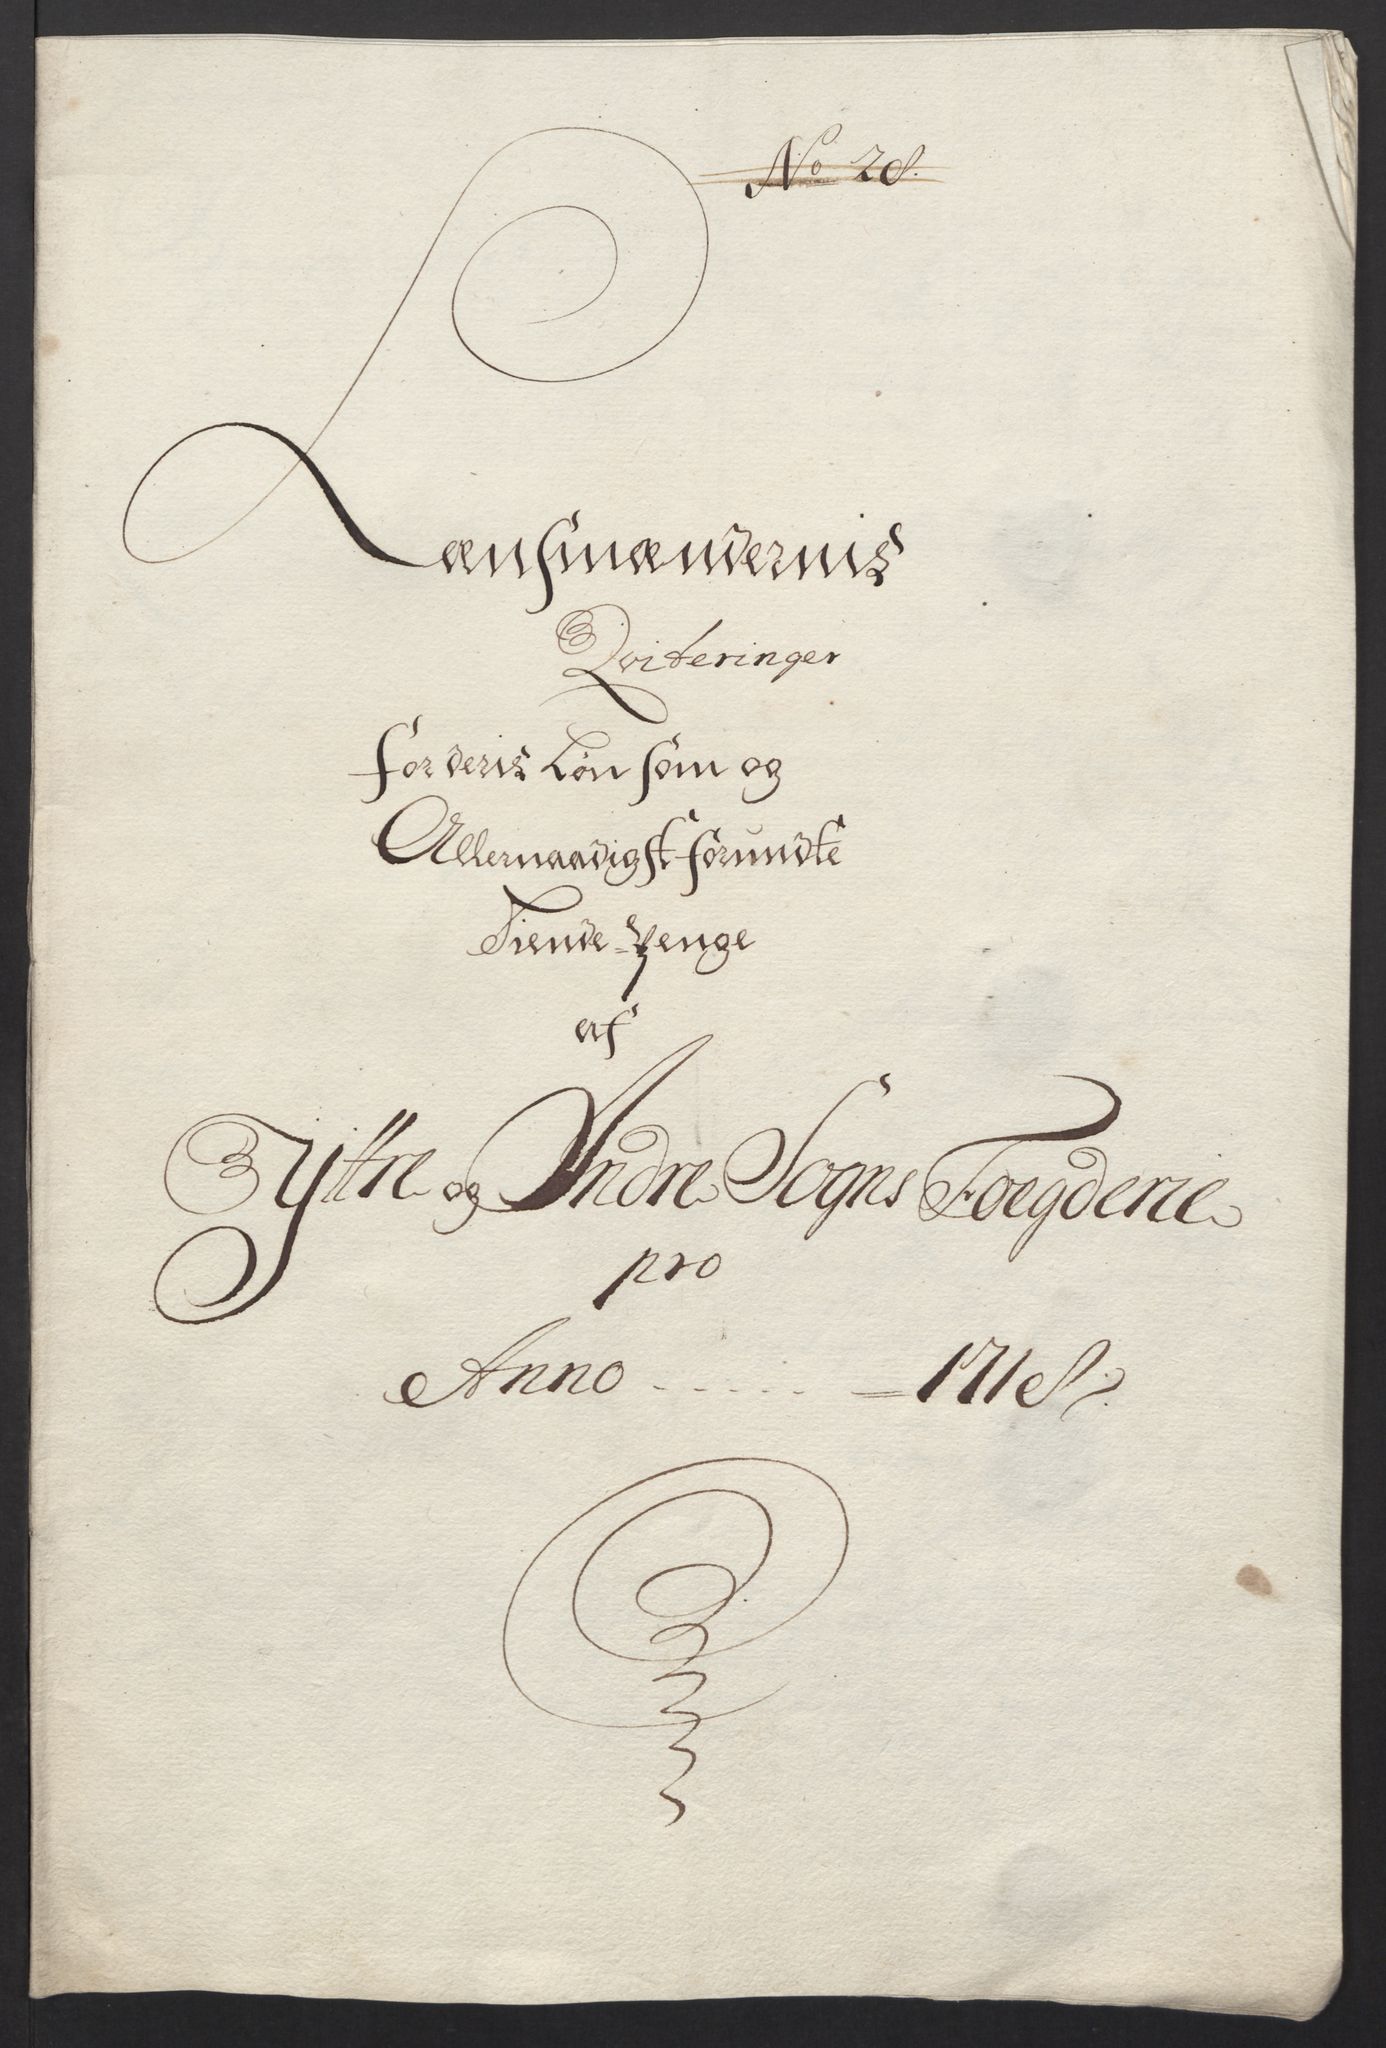 No 28.
Lænsmændernis
Qviteringer
for deris Løn som og
Allernaadigst forundte
Tiende-Penge
af
Yttre og Indre Sogns Foegderie
pro
Anno ..... = 1718.